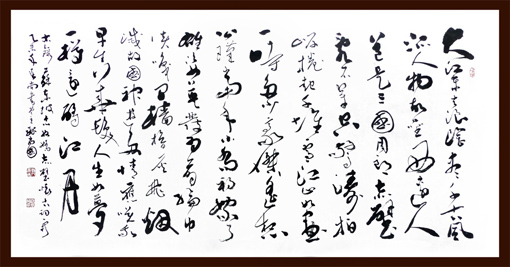 大江东去浪淘尽千古风
流人物故垒西边人
道是三國周郎赤壁
乱石穿空惊涛拍
岸捲起千堆雪江山如画
一时多少豪傑遥想
公瑾当年小乔初嫁了
雄姿英发羽扇纶巾
谈笑间樯橹灰飞烟
灭故國神遊多情应笑我
早生华发人生如梦
一樽还酹江月
苏东坡念奴娇赤壁怀古词